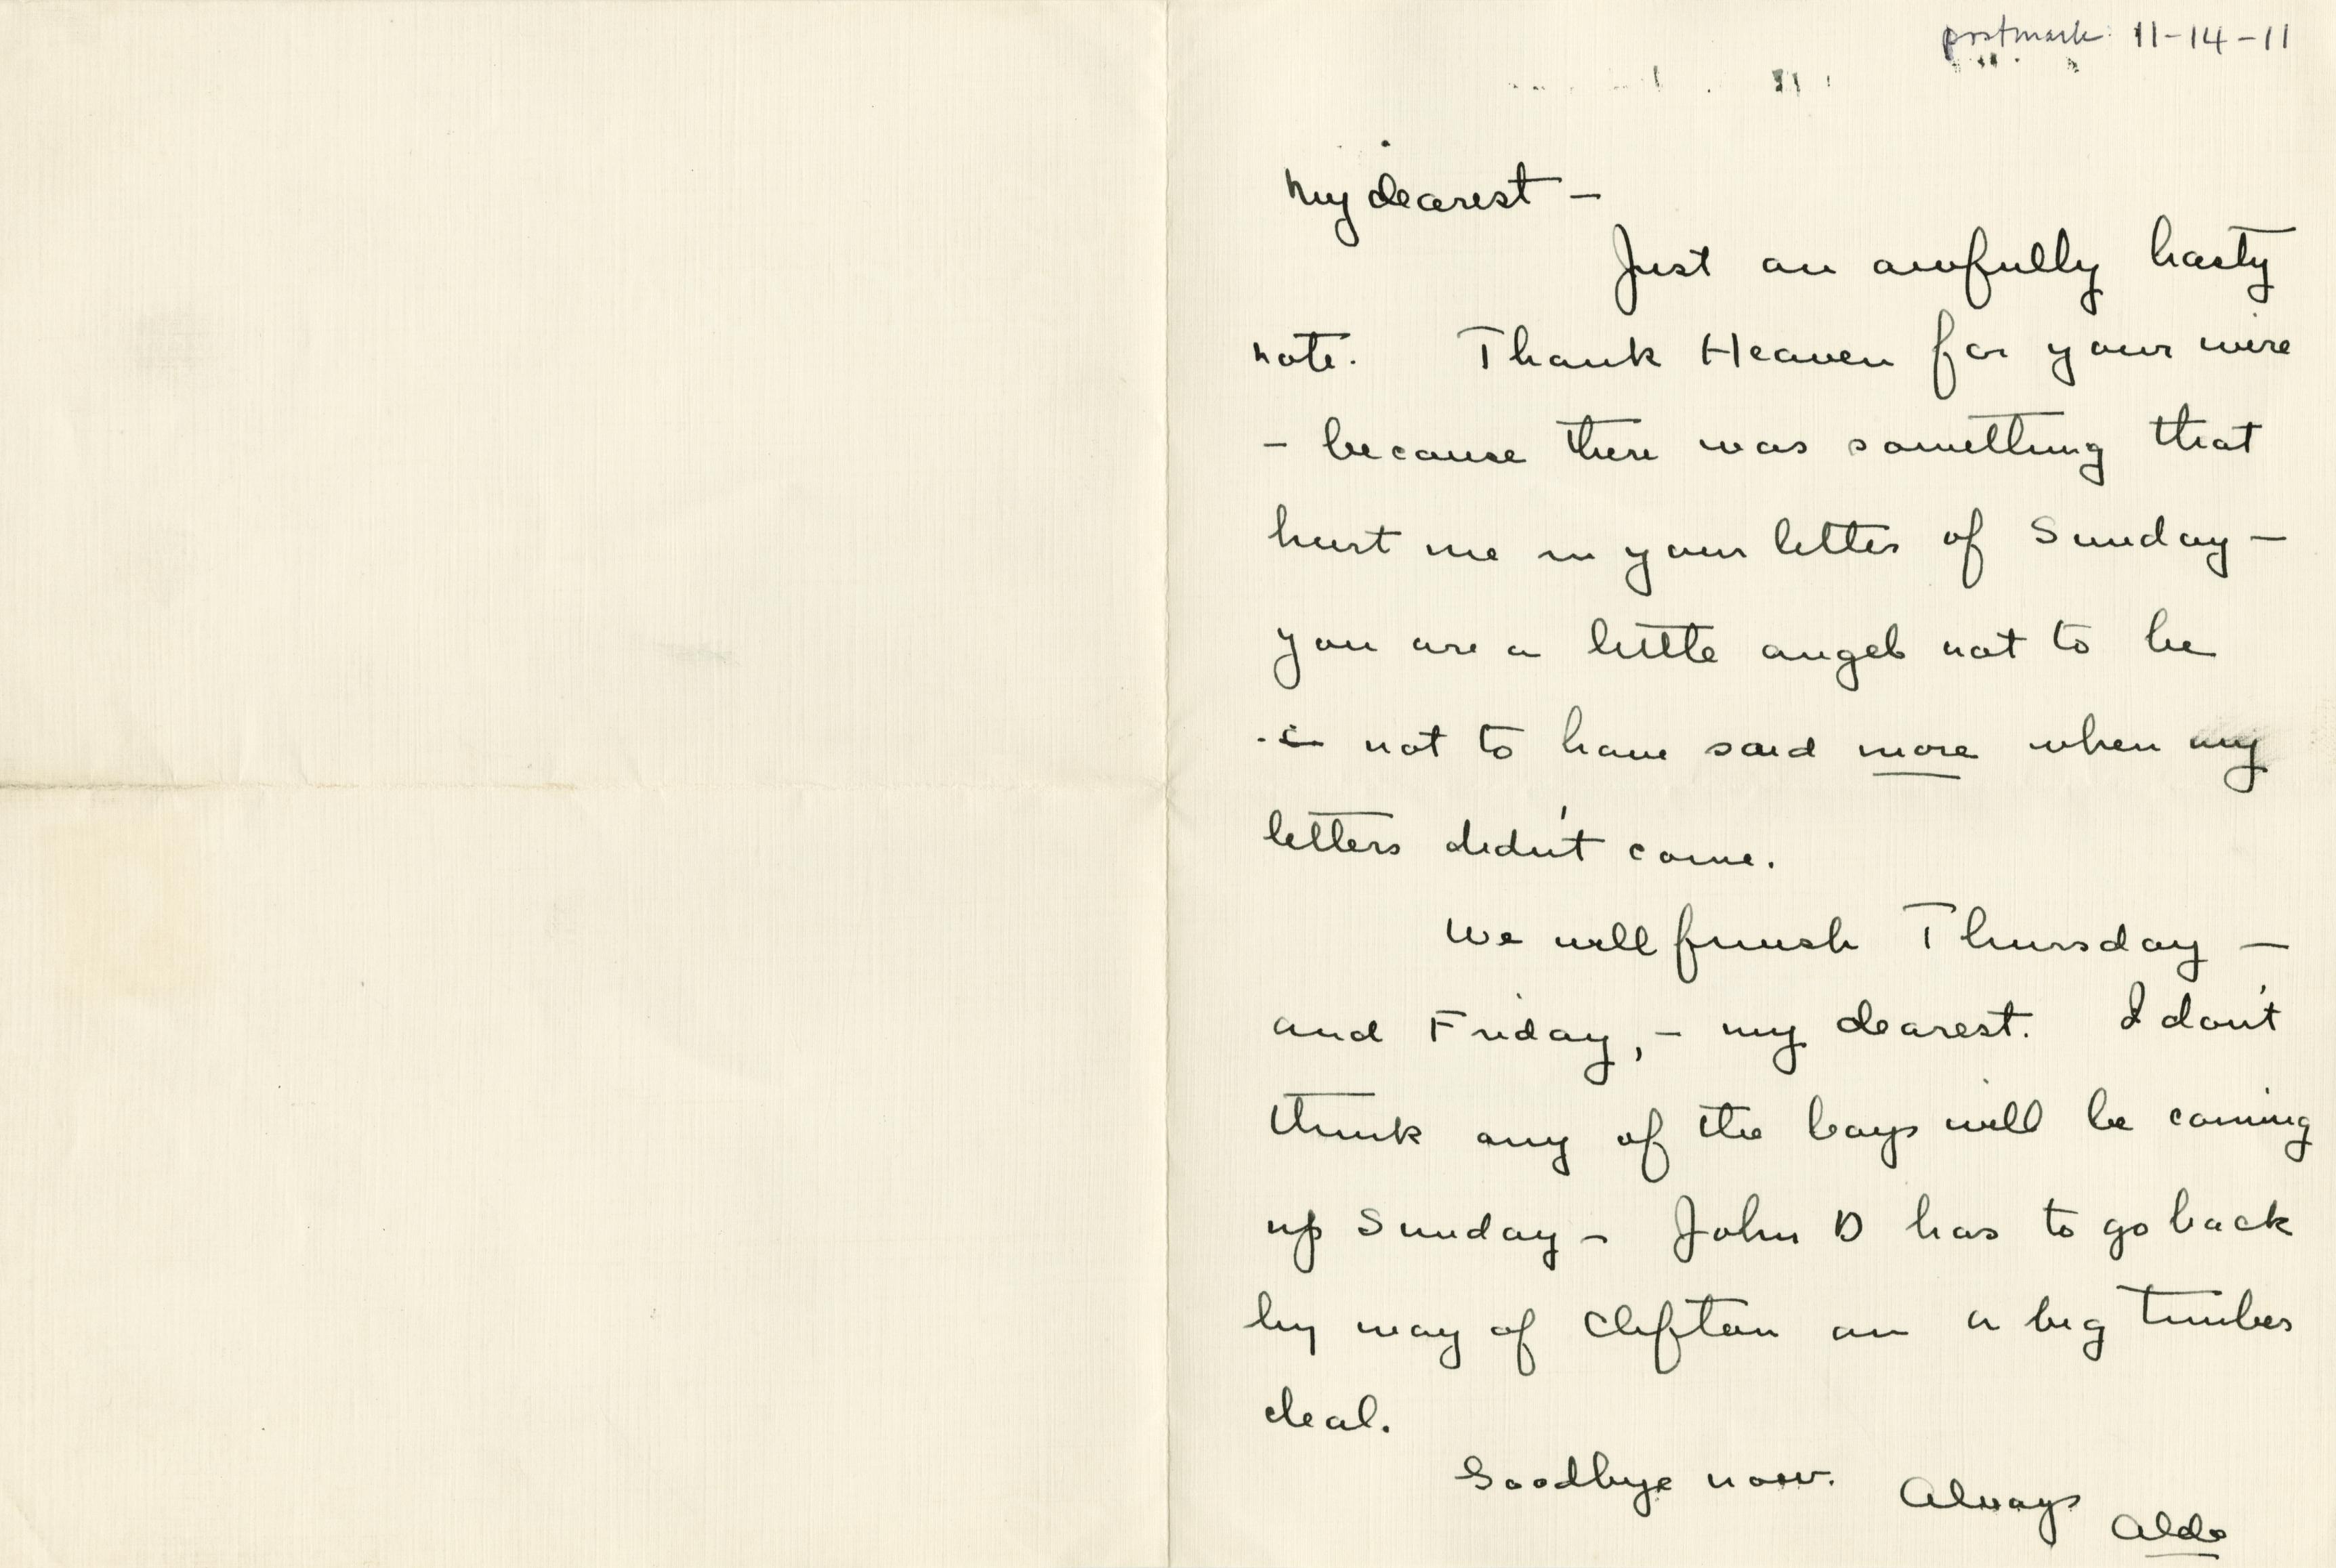 postmark: 11-14-11
My dearest —
Just an awfully hasty
note. Thank Heaven for your wire
- because there was something that
hurt me in your letter of Sunday —
you are a little angel not to be
not to have said more when my
letters didn't come.
We will finish Thursday —
and Friday, - my dearest. I don't
think any of the boys will be coming
up Sunday - John D has to go back
by way of Clifton on a big timber
deal.
Goodbye now. Always
Aldo